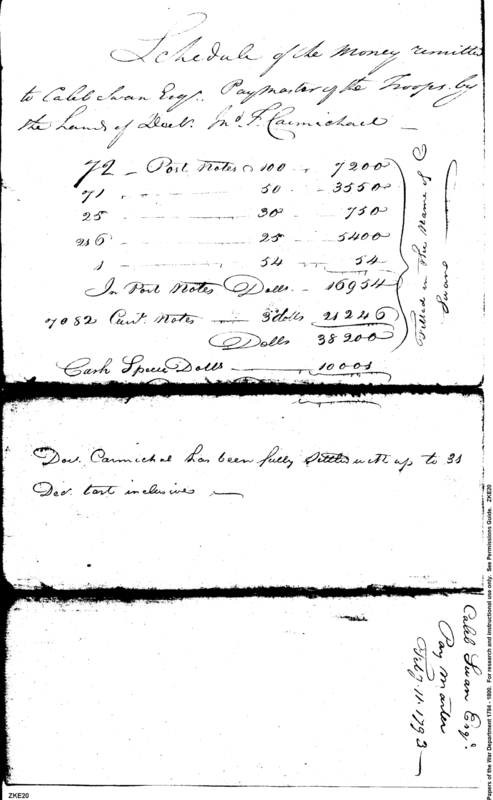 Schedule of the Money remitted
to Caleb Swan Esqr. Paymaster of the Troops by
the hand of Doctr. Jno. F. Carmichael —
72 — Post Notes @ 100 „ 7200
71 — 50 — 3550
25 — 30 — 750
216 — 25 — 5400
1 — 54 — 54
In Post Notes Dolls. — 16954
7082 Curt. Notes — 3 dolls 21246
Dolls 38200
Cash Specie Dolls — 10001
Filled in the Name of
Swan
Doct. Carmichal has been fully Settled with up to 31
Decr. last inclusive —
Caleb Swan Esqr.
Pay Master
Feby. 11. 1793 —
Papers of the War Department 1784 - 1800. For research and instructional use only. See Permissions Guide. ZKE20
ZKE20